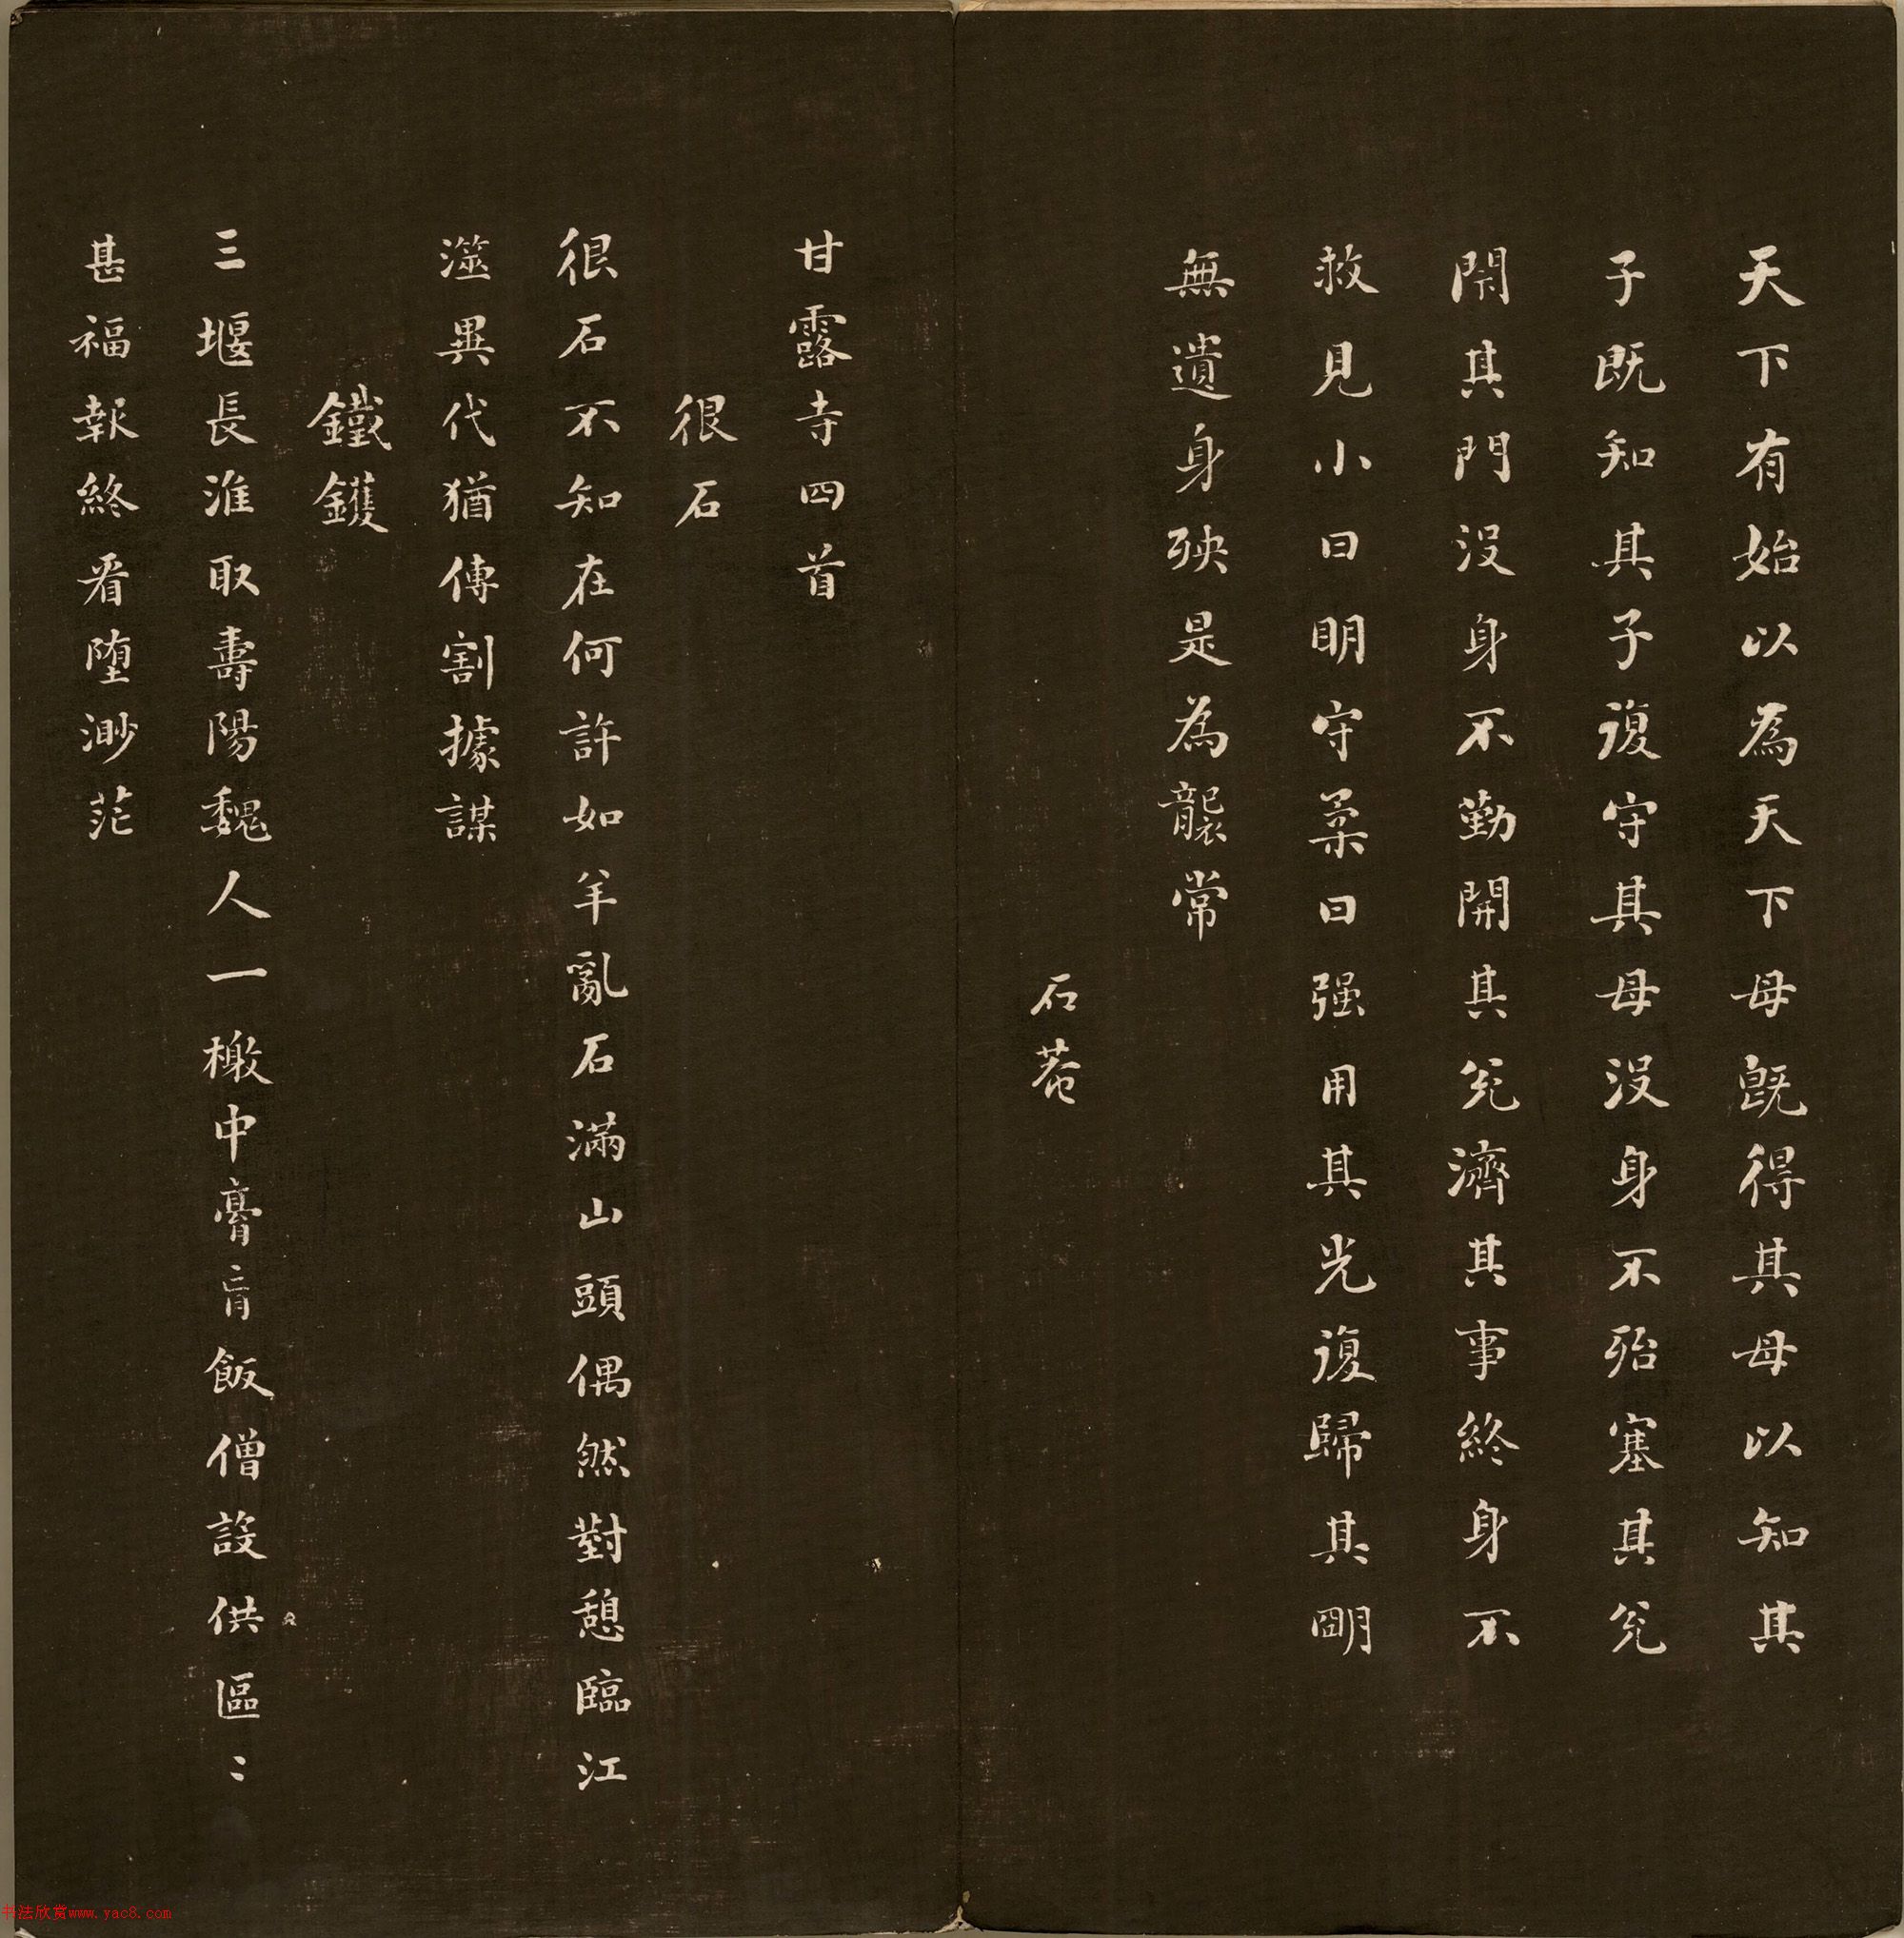 天下有始以為天下母既得其母以知其
子既知其子復守其母没身不殆塞其兊
閇其門没身不勤開其兊濟其事終身不
救見小曰明守柔曰强用其光復歸其朙
無遺身殃是為襲常
石菴
甘露寺四首
很石
很石不知在何許如羊亂石滿山頭偶然對憩臨江
澨異代猶傳割據謀
鐵鑊
三堰長淮取壽陽魏人一檄中膏肓飯僧設供區〻
甚福報終看堕渺茫
书法欣赏www.yac8.com